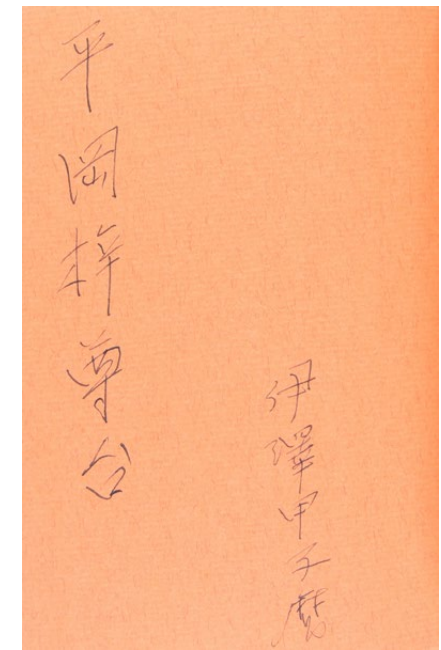 平岡梓尊台
伊澤甲子麿